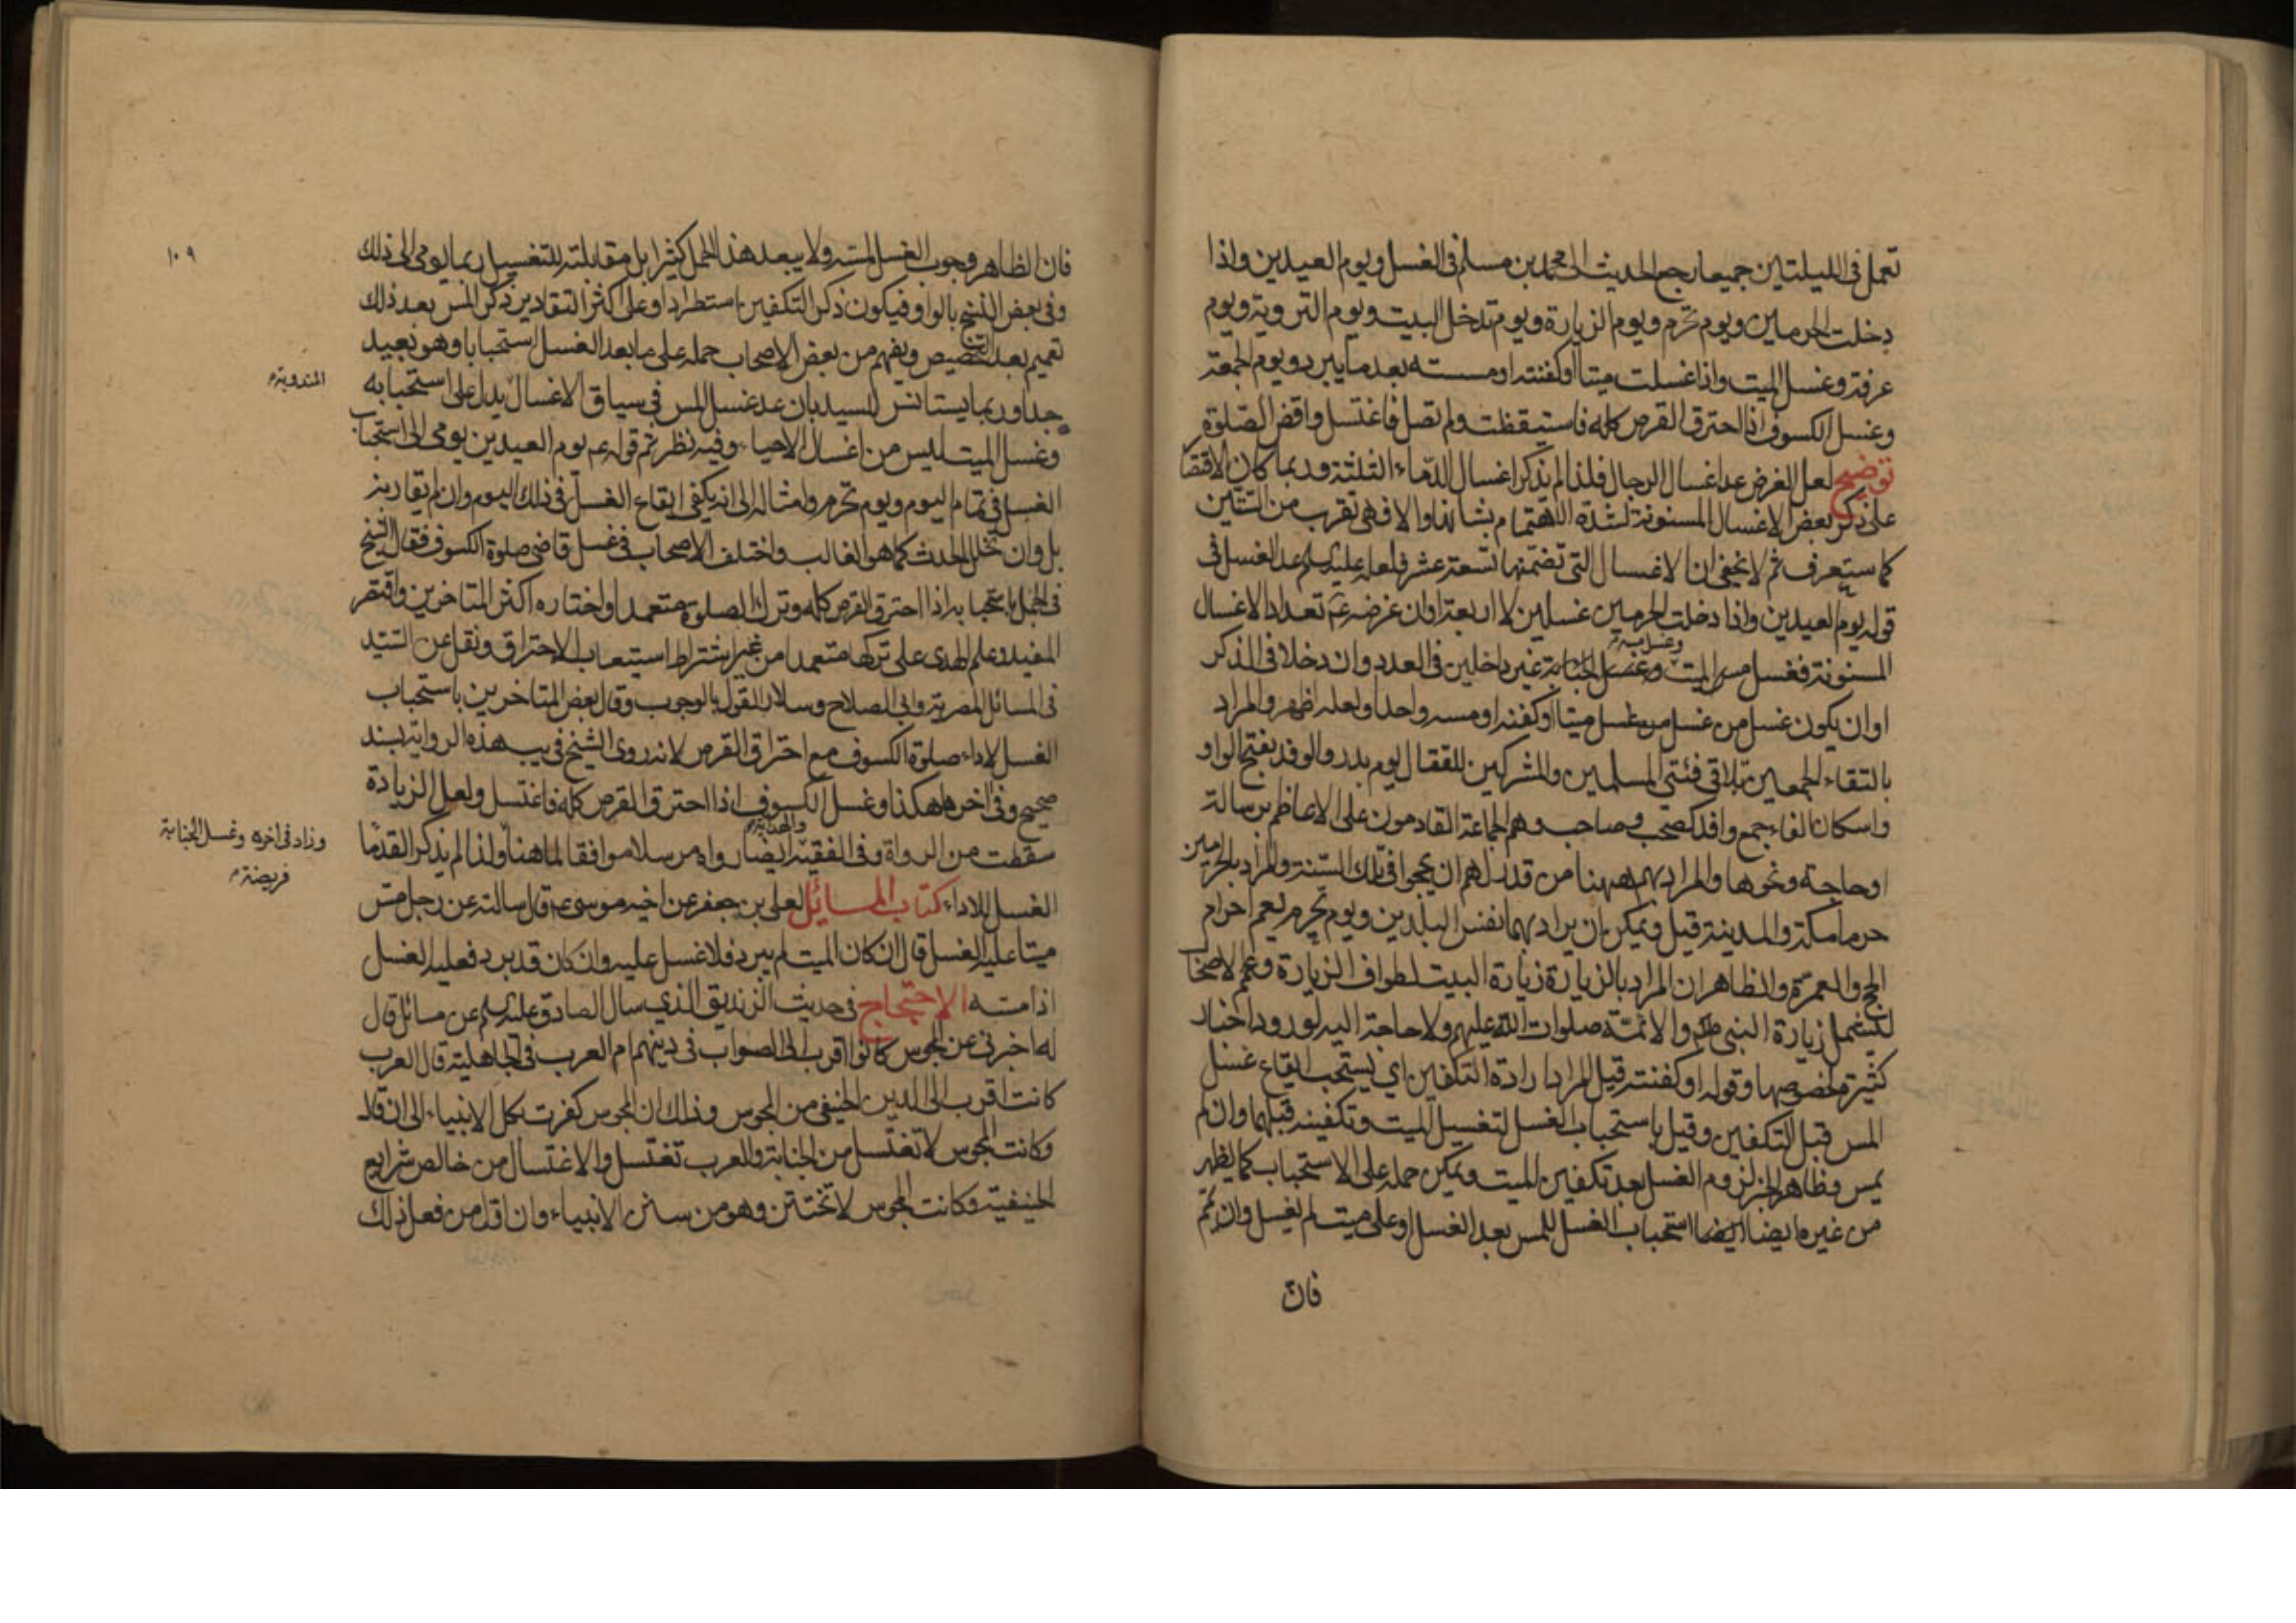 تعمل فى الليلتين جميعا رجع الحديث الى محمد بن مسلم فى الغسل ويوم العيدين واذا
دخلت الحرمين ويوم تحرم ويوم الزيارة ويوم تدخل البيت ويوم التروية ويوم
عرفة وغسل الميت واذا غسلت ميتا او كفنته او مسسته بعد ما يبرد ويوم الجمعة
وغسل الكسوف اذا احترق القرص كله فاستيقظت ولم تصل فاغتسل واقض الصلوة
توضيح لعل الغرض عد اغسال الرجال فلذا لم يذكر اغسال الدماء الثلثة وربما كان الاقتصا
على ذكر بعض الاغسال المسنونة لشدة الاهتمام بشانها والا فهى تقرب من الستين
كما ستعرف ثم لا يخفى ان الاغسال التى تضمنها تسعة عشر فلعله عليه السلم عد الغسل فى
قوله يوم العيدين واذا دخلت الحرمين غسلين لا اربعة او ان غرضه عم تعداد الاغسال
المسنونة فغسل مس الميت وغسل الجنابة غير داخلين فى العدد وان دخلا فى الذكر
او ان يكون غسل من غسل ميتا او كفنه او مسه واحدا ولعله اظهر والمراد
بالتقاء الجمعين تلاقى فئتى المسلمين والمشركين للقتال يوم بدر والوفد بفتح الواو
واسكان الفاء جمع وافد كصحب وصاحب وهم الجماعة القادمون على الاعاظم برسالة
او حاجة ونحوها والمراد بهم ههنا من قدر لهم ان يحجوا فى تلك السنة والمراد بالحرمين
حرما مكة والمدينة قيل ويمكن ان يراد بهما نفس البلدين ويوم تحرم يعم احرام
الحج والعمرة والظاهر ان المراد بالزيارة زيارة البيت لطواف الزيارة وعمم الاصحا
لتشمل زيارة النبى ص والائمة صلوات الله عليهم ولا حاجة اليه لورود اخبار
كثيرة لخصوصها وقوله او كفنته قيل المراد ارادة التكفين اى يستحب ايقاع غسل
المس قبل التكفين وقيل باستحباب الغسل لتغسيل الميت وتكفينه قبلهما وان لم
يمس وظاهر الخبر لزوم الغسل بعد تكفين الميت ويمكن حمله على الاستحباب كما يظهر
من غيره ايضا ايضا استحباب الغسل للمس بعد الغسل او على ميت لم يغسل وان تيمم
فان
١٠٩
فان الظاهر وجوب الغسل لمسه ولا يبعد هذا الحمل كثيرا بل مقابلته للتغسيل ربما يومى الى ذلك
وفى بعض النسخ بالواو فيكون ذكر التكفين استطرادا وعلى اكثر التقادير ذكر المس بعد ذلك
تعميم بعد التخصيص ويفهم من بعض الاصحاب حمله على ما بعد الغسل استحبابا وهو بعيد
جدا وربما يستانس للسيد بان عد غسل المس فى سياق الاغسال يدل على استحبابه
المندوبة
وغسل الميت ليس من اغسال الاحياء وفيه نظر ثم قوله عم يوم العيدين يومى الى استحباب
الغسل فى تمام اليوم ويوم تحرم وامثاله الى انه يكفى ايقاع الغسل فى ذلك اليوم وان لم يقارنه
بل وان تخلل الحدث كما هو الغالب واختلف الاصحاب فى غسل قاضى صلوة الكسوف فقال الشيخ
فى الجمل باستحبابه اذا احترق القرص كله وترك الصلوة متعمدا واختاره اكثر المتاخرين واقتصر
المفيد وعلم الهدى على تركها متعمدا من غير اشتراط استيعاب الاحتراق ونقل عن السيد
فى المسائل المصرية وابى الصلاح وسلار القول بالوجوب وقال بعض المتاخرين باستحباب
الغسل لاداء صلوة الكسوف مع احتراق القرص لانه روى الشيخ فى يب هذه الرواية بسند
صحيح وفى اخرها هكذا وغسل الكسوف اذا احترق القرص كله فاغتسل ولعل الزيادة
سقطت من الرواة وفى الفقيه والهداية ايضا رواه مرسلا موافقا لما هنا ولذا لم يذكر القدما
وزاد فى اخره وغسل الجنابة
فريضة
الغسل للاداء كتاب المسائل لعلى بن جعفر عن اخيه موسى عم قال سالته عن رجل مس
ميتا عليه الغسل قال ان كان الميت لم يبرد فلا غسل عليه وان كان قد برد فعليه الغسل
اذا مسه الاحتجاج فى حديث الزنديق الذى سال الصادق عليه السلم عن مسائل قال
له اخبرنى عن المجوس كانوا اقرب الى الصواب فى دينهم ام العرب فى الجاهلية قال العرب
كانت اقرب الى الدين الحنيفى من المجوس وذلك ان المجوس كفرت بكل الانبياء الى ان قال
وكانت المجوس لا تغتسل من الجنابة والعرب تغتسل والاغتسال من خالص شرايع
الحنيفية وكانت المجوس لا تختتن وهو من سنن الانبياء وان اول من فعل ذلك